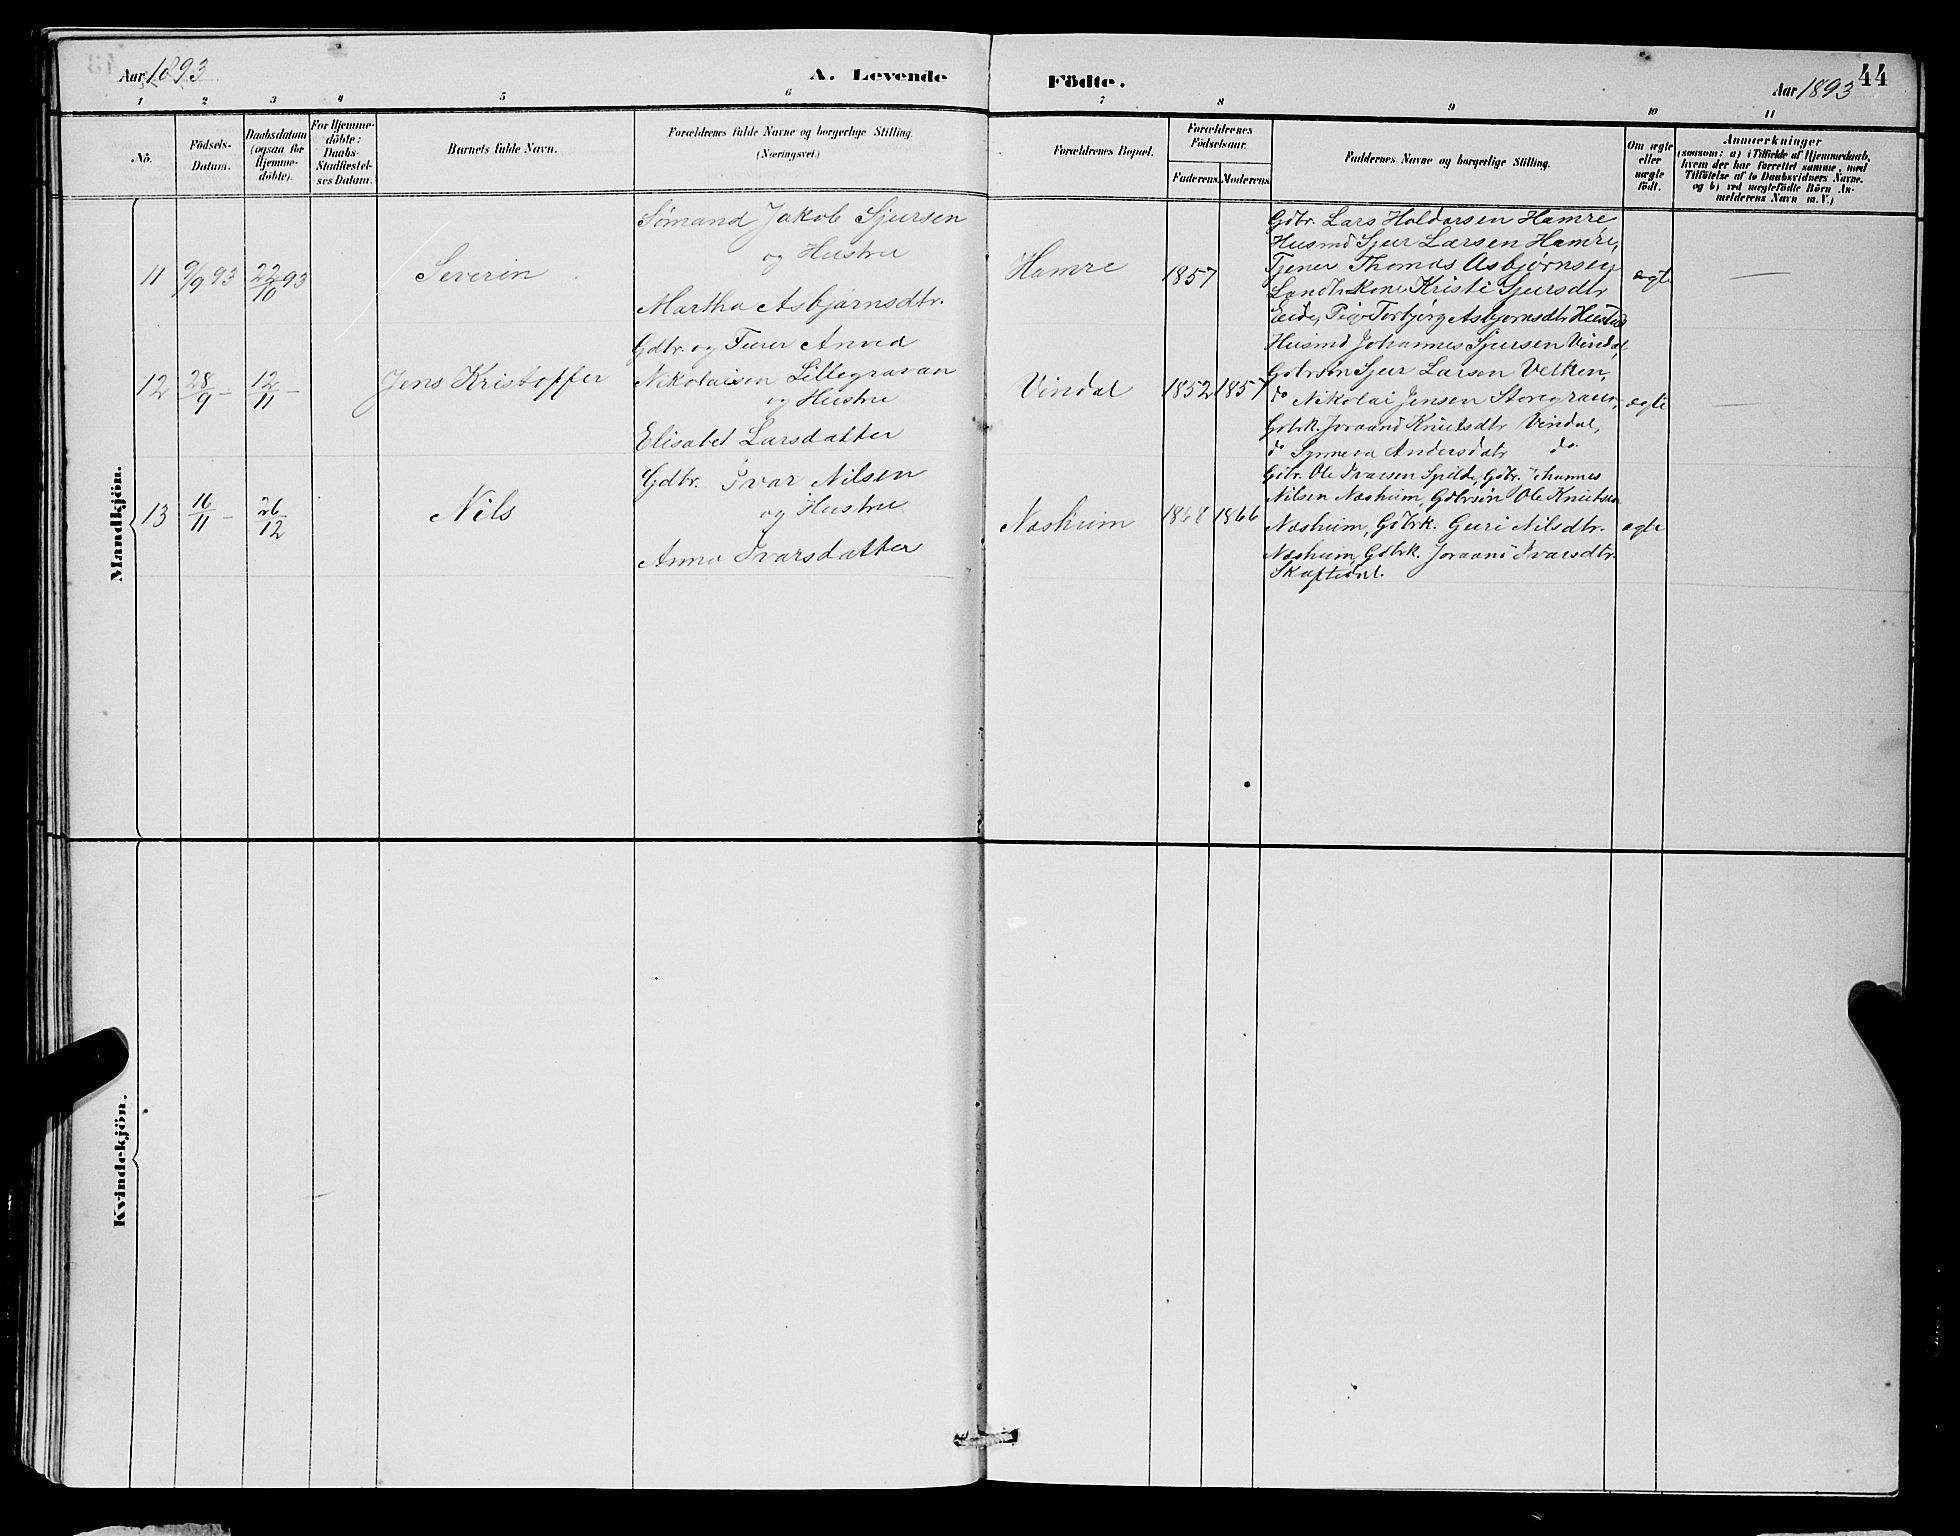 Aar 1893
A. Levende
Födte.
Aar 1893
44
1 2 3 4 5 6 7 8 9 10 11
No.
Födsels-
Datum.
Daabsdatum
(ogsaa for
Hjemme-
döbte).
For Hjemme-
döbte:
Daabs-
Stadfæstel-
ses Datum.
Barnets fulde Navn.
Forældrenes fulde Navne og borgerlige Stilling.
(Næringsvei.)
Forældrenes Bopæl.
Forældrenes
Födselsaar.
Faderens. Moderens.
Faddernes Navne og borgerlige Stilling.
Om ægte
eller
uægte
født.
Anmærkninger
(saasom: a) i Tilfælde af Hjemmedaab,
hvem der har forrettet samme, med
Tilføielse af to Daabsvidners Navne.
og b) ved uægtefødte Börn An-
melderens Navn m. V.)
Mandkjön.
11 9/9 93 22/10 93 Severin
Sømand Jakob Sjursen
og Hustru
Martha Asbjørnsdtr.
Hamre 1857
Gdbr. Lars Haldorsen Hamre
Husmd Sjur Larsen Hamre,
Tjener Thomas Asbjørnsen
Landh.kone Kristi Sjursdtr
Eide, Pige Torbjørg Asbjørnsdtr
ægte —
12 28/9 – 12/11 – Jens Kristoffer
Gdbr. og Anved
Nikolaisen Lillegraven
og Hustru
Elisabet Larsdatter
Vindal 1852 1857
Husmd Johannes Sjursen Vindal,
Gdbrsøn Sjur Larsen Velken,
do Nikolai Jensen Storegraven,
Gdbrk. Joraand Knutsdtr Vindal,
do Synneva Andersdatr do
ægte —
13 16/11 – 26/12 Nils
Gdbr. Ivar Nilsen
og Hustru
Anna Ivarsdatter
Næsheim 1868 1866
Gdbr. Ole Ivarsen Spilde, Gdbr. Johannes
Nilsen Næsheim, Gdbrsøn Ole Knutsen
Næsheim, Gdbrk. Guri Nilsdtr.
Næsheim, Gdbrk. Joraand Ivarsdtr.
Skaftedal.
ægte
Kvindekjön.